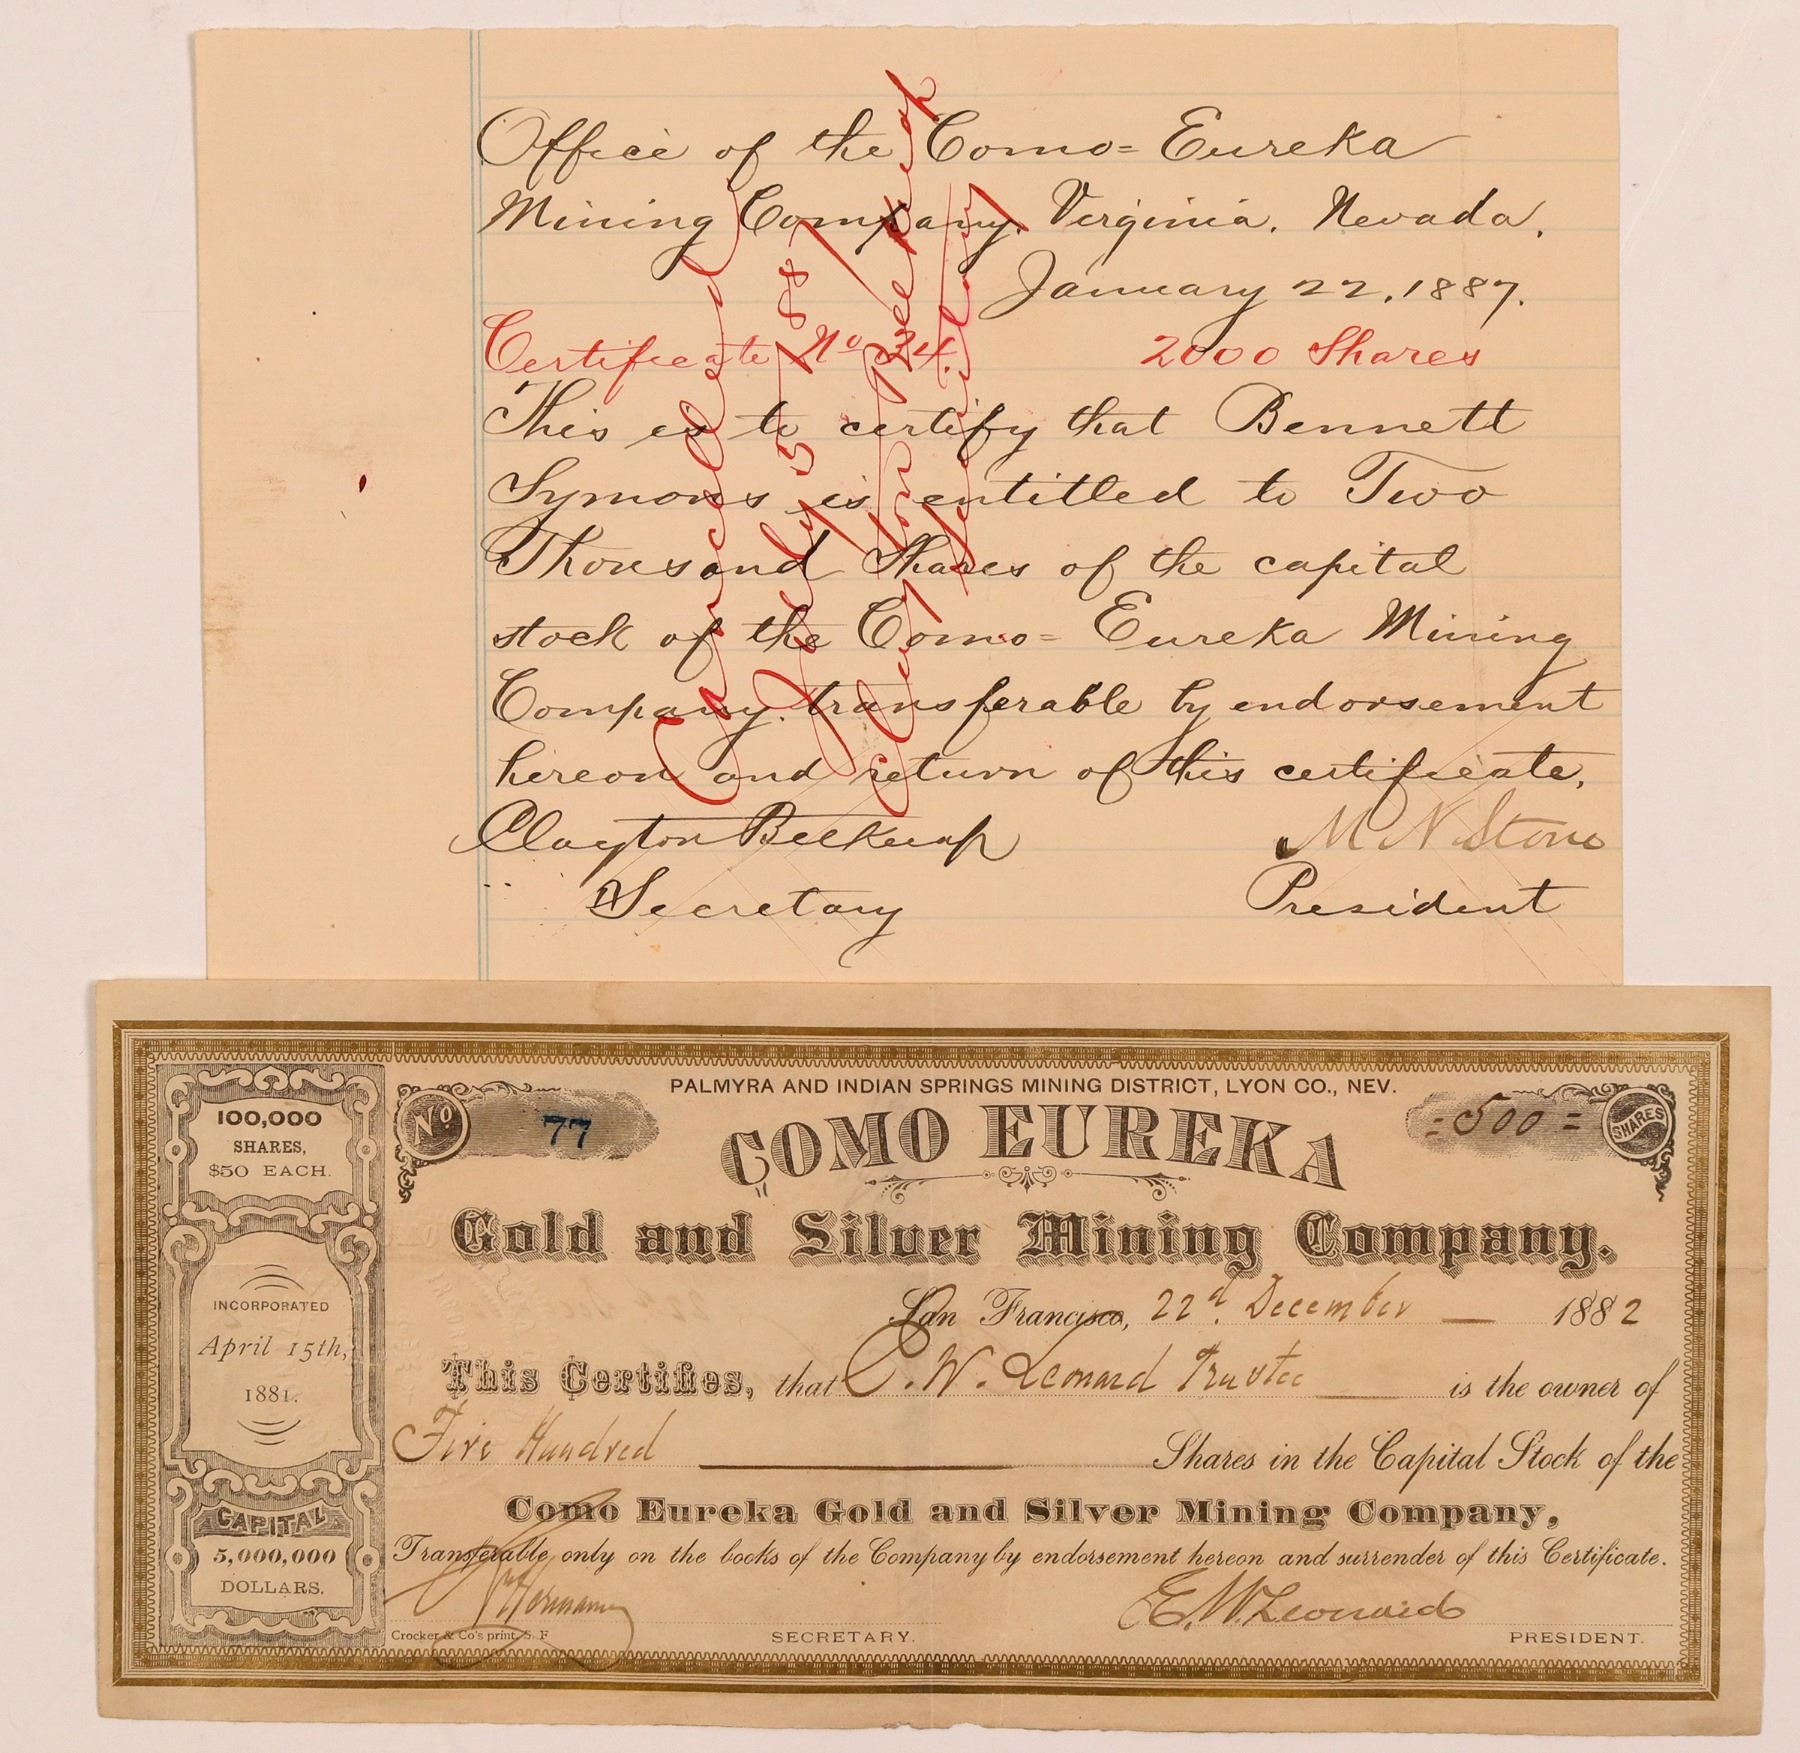 Office of the Como=Eureka
Mining Company. Virginia. Nevada.
January 22, 1887.
Certificate No 34. 2000 Shares
This is to certify that Bennett
Symons is entitled to Two
Thousand Shares of the capital
stock of the Como=Eureka Mining
Company. transferable by endorsement
hereon and return of this certificate.
Clayton Belknap M N Stone
Secretary President
Cancelled
July 5th 1887
Clayton Belknap
Secretary
PALMYRA AND INDIAN SPRINGS MINING DISTRICT, LYON CO., NEV.
No 77 =500= SHARES
COMO EUREKA
Gold and Silver Mining Company.
San Francisco, 22d. December 1882
This Certifies, that E. W. Leonard Trustee is the owner of
Five Hundred Shares in the Capital Stock of the
Como Eureka Gold and Silver Mining Company,
Transferable only on the books of the Company by endorsement hereon and surrender of this Certificate.
Hermann E. W. Leonard
Crocker & Co's print, S. F SECRETARY. PRESIDENT.
100,000
SHARES,
$50 EACH.
INCORPORATED
April 15th,
1881.
CAPITAL
5,000,000
DOLLARS.